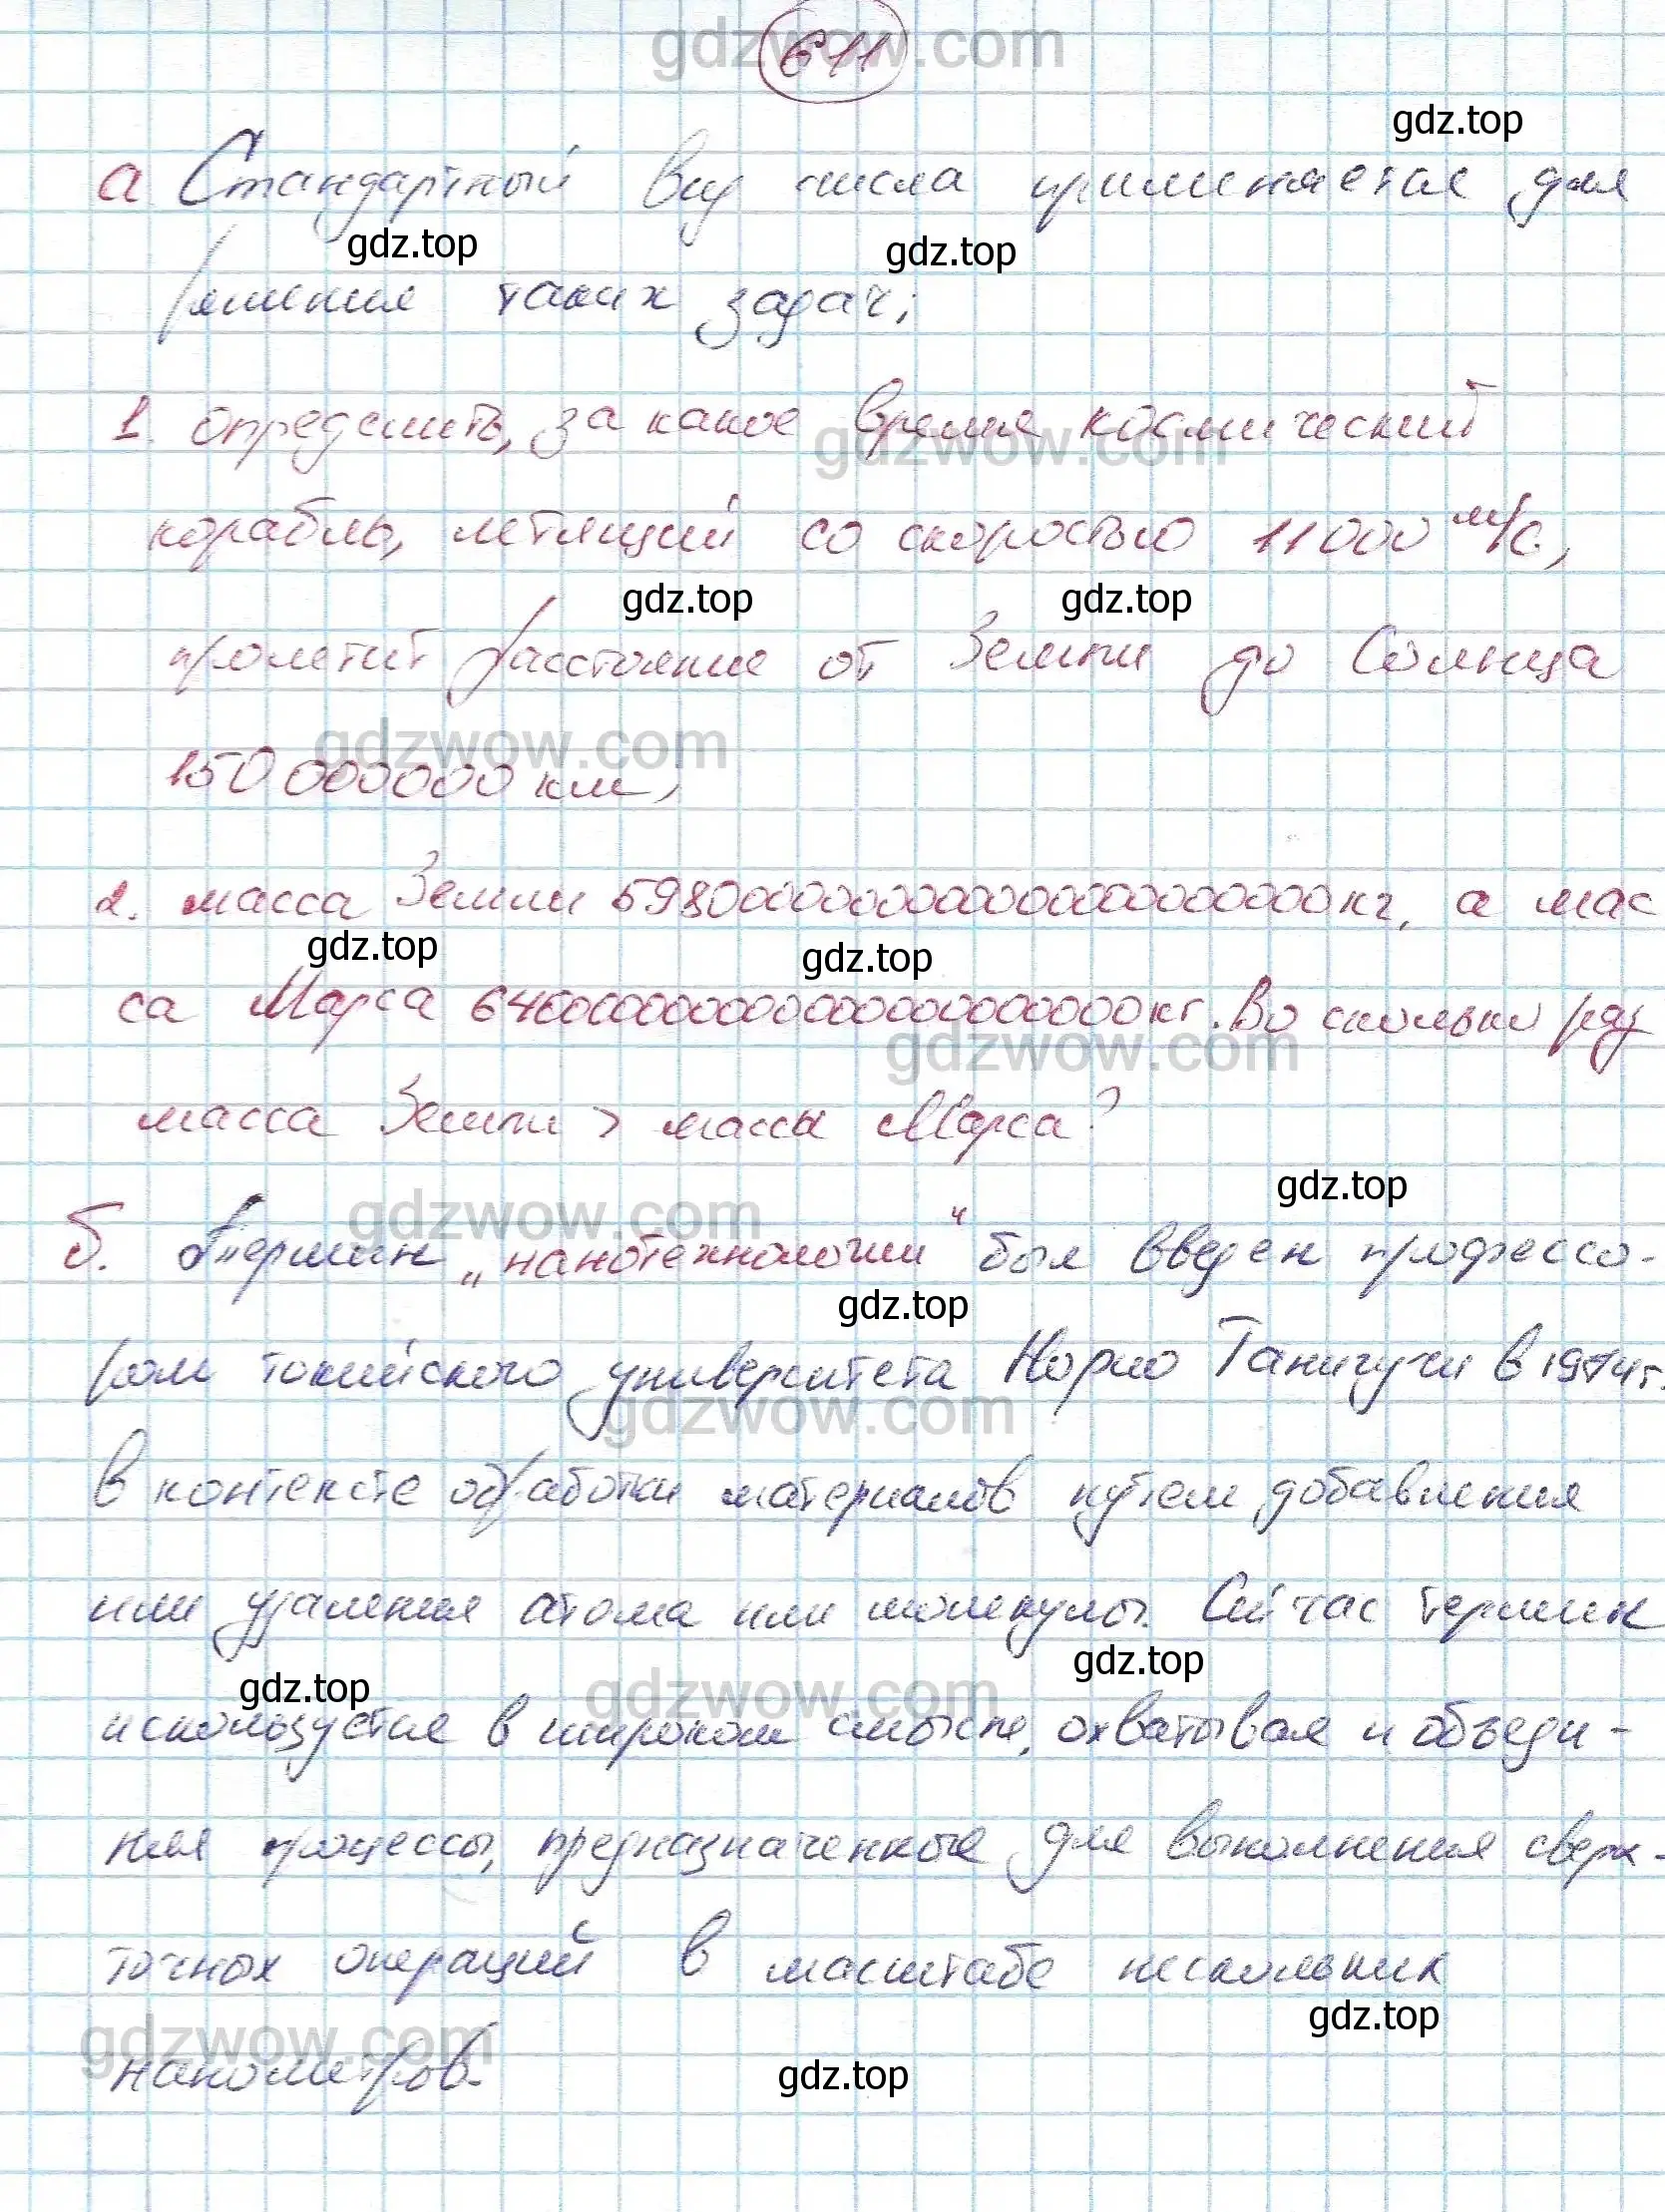 611
а Стандартный вид числа применяется для
решения таких задач:
1. определить, за какое время космический
корабль, летящий со скоростью 11000 м/с.,
пролетит расстояние от Земли до Солнца
150 000000 км,
2. масса Земли кг, а мас
са Марса кг. Во сколько раз
масса Земли > массы Марса?
б. Термин „нанотехнологии“ был введен профессо-
ром токийского университета Норио Танигучи в 1974 г.
в контексте обработки материалов путем добавления
или удаления атома или молекулы. Сейчас термин
используется в широком смысле, охватывая и объеди-
няя процессы, предназначенные для выполнения сверх-
точных операций в масштабе нескольких
нанометров.
gdz.top
gdz.top
gdz.top
gdz.top
gdz.top
gdz.top
gdz.top
gdz.top
gdz.top
gdz.top
gdz.top
gdz.top
gdz.top
gdzwow.com
gdzwow.com
gdzwow.com
gdzwow.com
gdzwow.com
gdzwow.com
gdzwow.com
gdzwow.com